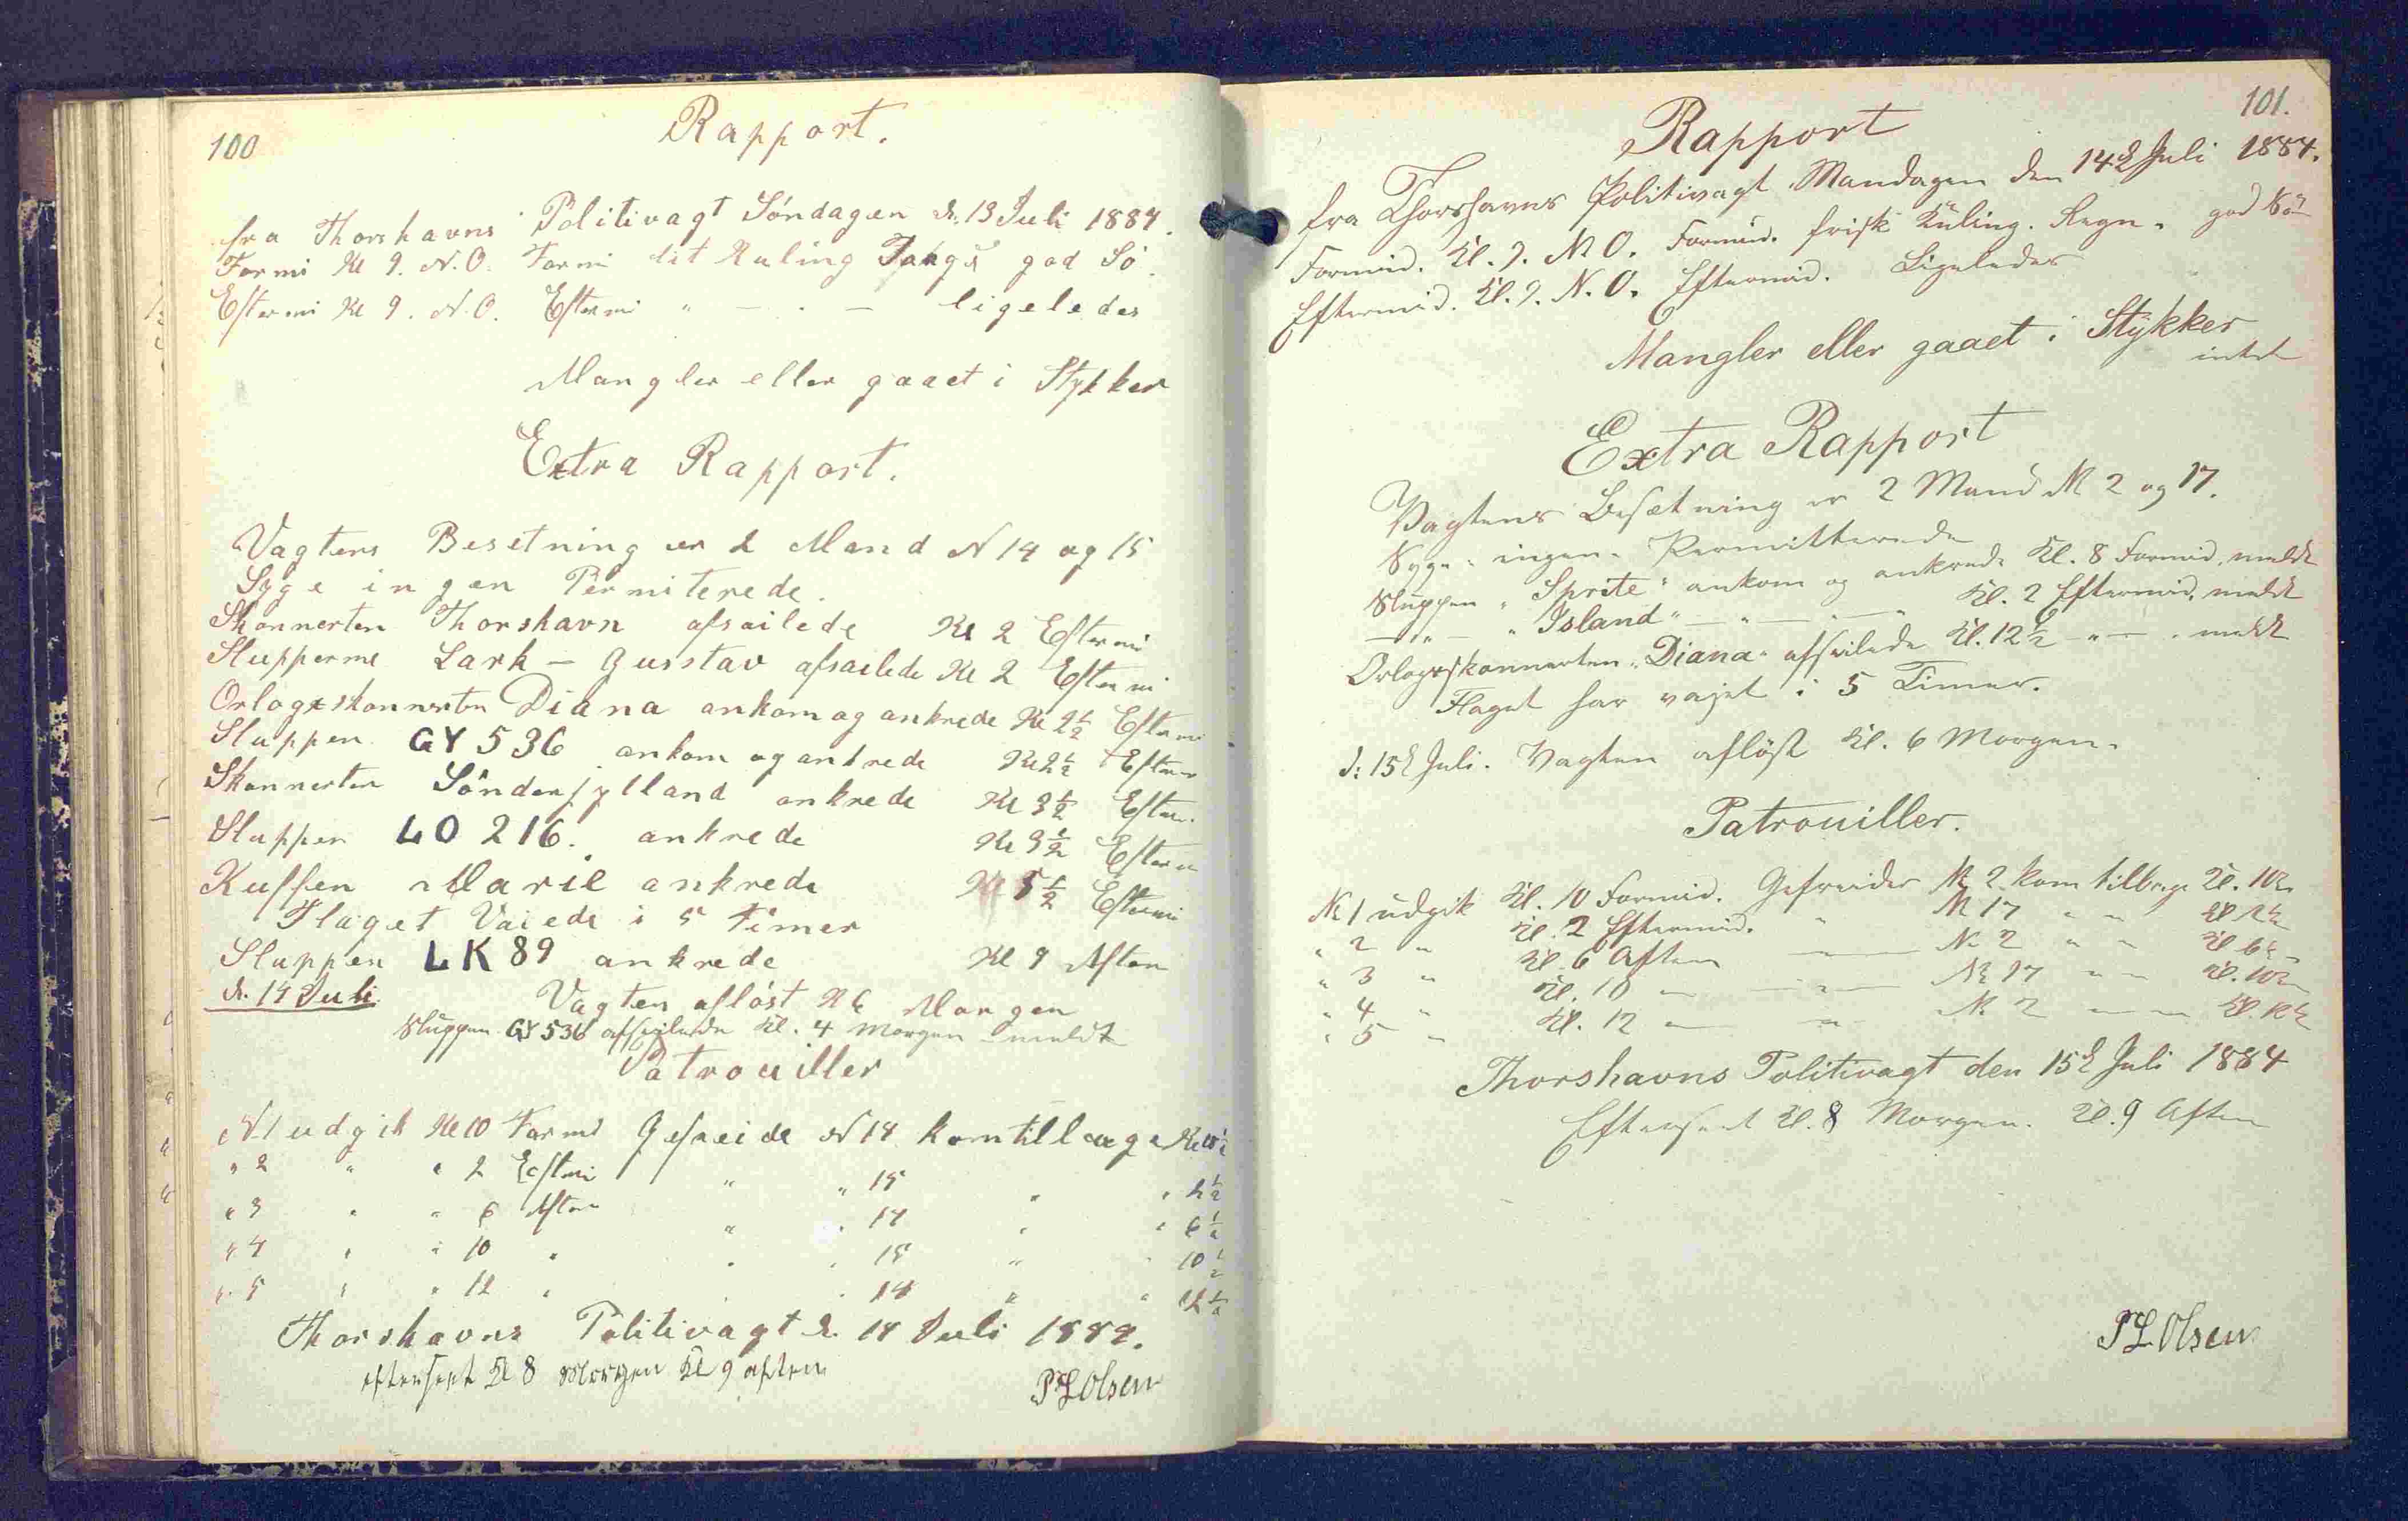 100
Rapport.
fra Thorshavns Politivagt Söndagen d. 13 Juli 1884.
Formi Kl 9. N.O. Formi lit Kuling god Sö.
Eftermi Kl 9. N.O. Eftermi " — . — ligeledes
Mangler eller gaaet i Stykker
Extra Rapport.
Vagtens Besetning er 2 Mand N 14 og 15
Syge ingen Permiterede.
Skonnerten Thorshavn afsailede Kl 2 Eftermi
Slupperne Lark — Gusstav afsailede Kl 2 Eftermi
Orlogsskonnerten Diana ankom og ankrede Kl 2½ Eftermi
Sluppen GY 536 ankom og ankrede Kl 2½ Efterm
Skonnerten Sönderjylland ankrede Kl 3½ Efterm.
Sluppen LO 216. ankrede Kl 3½ Efterm
Kuffen Marie ankrede Kl 5½ Eftermi
Flaget Vaiede i 5 Timer
Sluppen LK 89 ankrede Kl 9 Aften
d. 14 Juli. Vagten aflöst Kl 6 Morgen
Sluppen GY 536 afseilede Kl. 4 Morgen meldt
Patrouiller
N 1 udgik Kl 10 Formi Gefreide N 14 kom tillbage Kl 10½
" 2 " " 2 Eftmi " " 15 " " 2½
" 3 " " 6 Aften " " 14 " " 6½
" 4 " " 10 " " " 15 " " 10½
" 5 " " 12 " " " 14 " " 12½
Thorshavns Politivagt d. 14 Juli 1884.
efterseet Kl 8 Morgen Kl 9 aften
P L Olsen
101.
Rapport
fra Thorshavns Politivagt Mandagen den 14d Juli 1884.
Formid. Kl. 9. N O. Formid. frisk Kuling. Regn. god Sö
Eftermid. Kl. 9. N. O. Eftermid. Ligeledes
Mangler eller gaaet i Stykker
intet
Extra Rapport
Vagtens Besætning er 2 Mand N 2 og 17.
Syge: ingen. Permitterede
Sluppen "Sprite" ankom og ankrede Kl. 8 Formid. meldt
— " — "Island" — " — " — " Kl. 2 Eftermid. meldt
Orlogsskonnerten "Diana" afseilede Kl. 12½ — " — . meldt
Flaget har vajet i 5 Timer.
d: 15d Juli. Vagten aflöst Kl. 6 Morgen.
Patrouiller.
N 1 udgik Kl. 10 Formid. Gefreider N 2 kom tilbage Kl. 10½
" 2 " Kl. 2 Eftermid. " N 17 " " Kl 2½
" 3 " Kl. 6 Aften — " — N 2 " " Kl 6½
" 4 " Kl. 10 — — " — N 17 " — Kl. 10½
" 5 " Kl. 12 — " N 2 — — Kl. 12½
Thorshavns Politivagt den 15d Juli 1884
Efterseet Kl. 8 Morgen. Kl. 9 Aften
P L Olsen